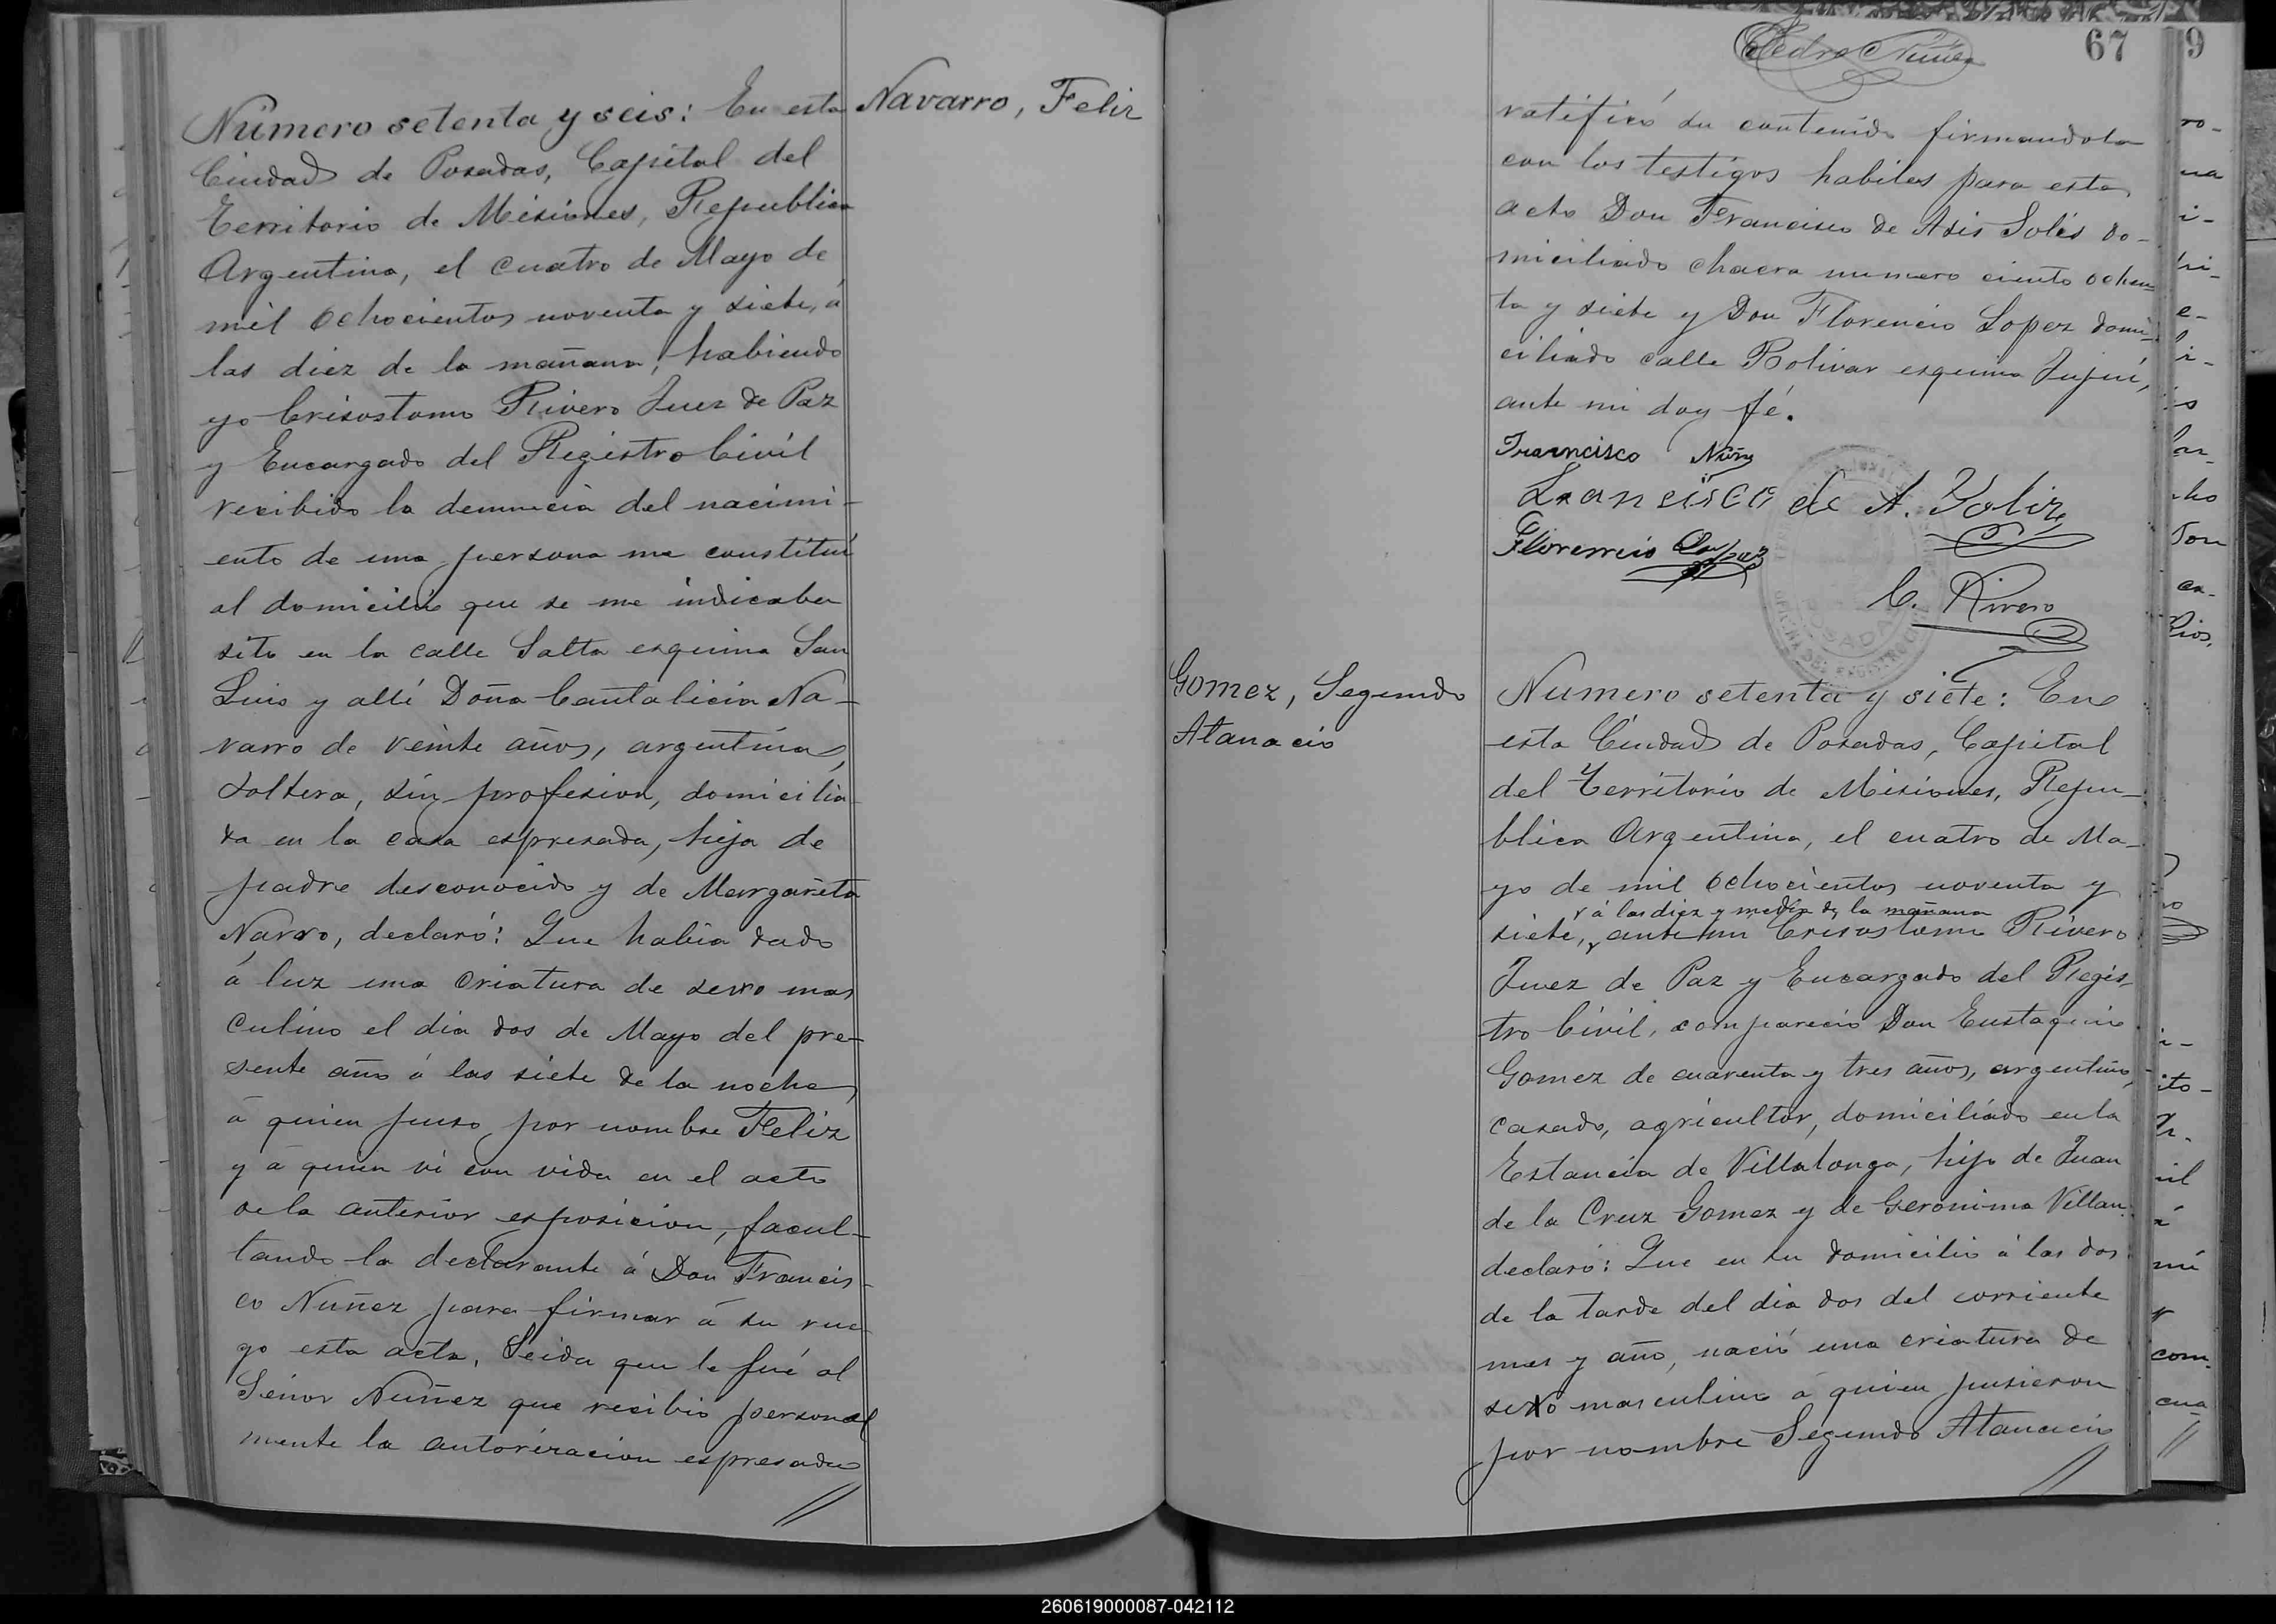 Número setenta y seis: En esta
Navarro, Feliz
Ciudad de Posadas, Capital del
Territorio de Misiones, Republica
Argentina, el cuatro de Mayo de
mil ochocientos noventa y siete, á
las diez de la mañana, habiendo
yo Crisostomo Rivero Juez de Paz
y Encargado del Registro Civil
recibido la denuncia del nacimi-
ento de una persona me constituí
al domicilio que se me indicaba
sito en la calle Salta esquina San
Luis y allí Doña Cantalicia Na-
varro de veinte años, argentina,
soltera, sin profesion, domicilia-
da en la casa espresada, hija de
padre desconocido y de Margarita
Navrro, declaró: Que habia dado
á luz una criatura de sexo mas
culino el dia dos de Mayo del pre-
sente año á las siete de la noche,
á quien puso por nombre Feliz
y á quien vi con vida en el acto
de la anterior esposicion, facul-
tando la declarante á Don Francis-
co Nuñez para firmar á su rue-
go esta acta. Leida que le fué al
Señor Nuñez que recibió personal
mente la autorizacion espresada
//
Pedro Nuñez
67
ratificó su contenido firmandola
con los testigos habiles para este
acto Don Francisco de Asis Solis do-
miciliado chacra numero ciento ochen-
ta y siete y Don Florencio Lopez domi-
ciliado calle Bolivar esquina Jujuí,
ante mi doy fé.
Francisco Nuñez
Francisco de A. Soliz
Florencio Lopez
C. Rivero
POSADAS
Gomez, Segundo
Atanacio
Numero setenta y siete: En
esta Ciudad de Posadas, Capital
del Territorio de Misiones, Repu-
blica Argentina, el cuatro de Ma-
yo de mil ochocientos noventa y
á las diez y media de la mañana
siete, ante mi Crisostomo Rivero
Juez de Paz y Encargado del Regis-
tro Civil, comparecio Don Eustaquio
Gomez de cuarenta y tres años, argentino,
casado, agricultor, domiciliado en la
Estancia de Villalonga, hijo de Juan
de la Cruz Gomez y de Geronima Villan
declaró: Que en su domicilio á las dos
de la tarde del dia dos del corriente
mes y año, nació una criatura de
sexo masculino á quien pusieron
por nombre Segundo Atanacio
//
9
260619000087-042112